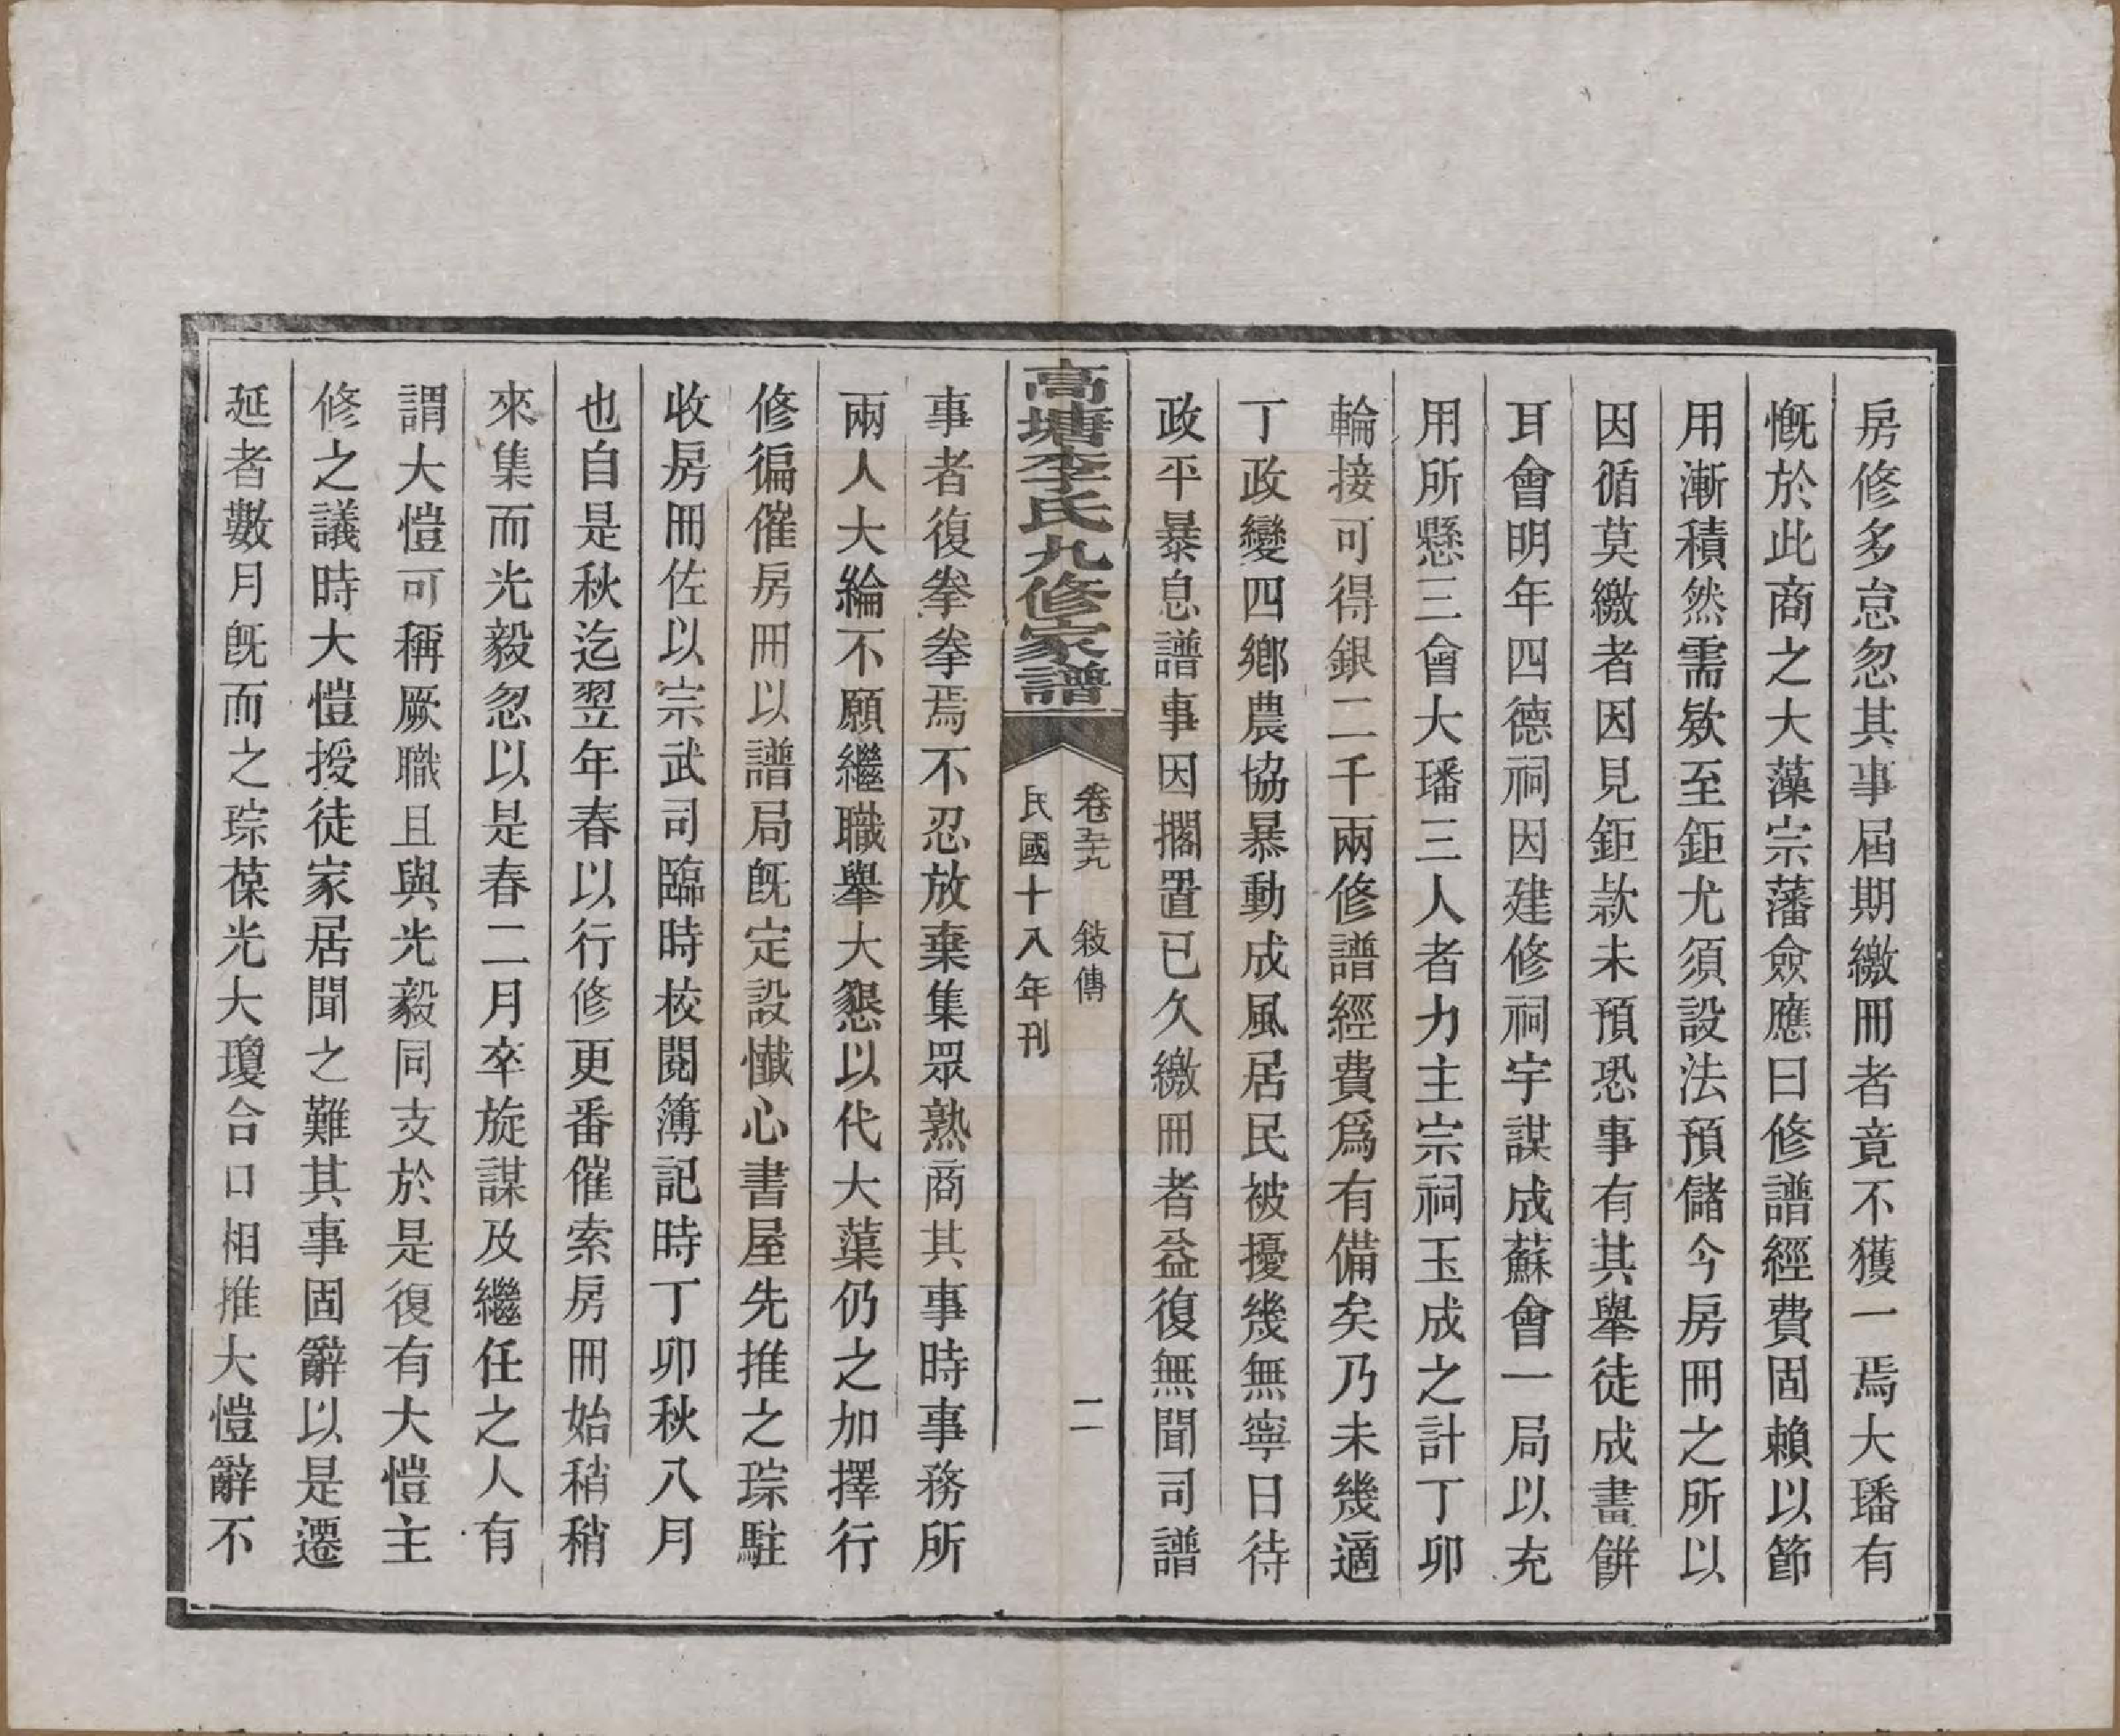 房修多怠忽其事屆期繳冊者竟不獲一焉大璠有
慨於此商之大藻宗藩僉應曰修譜經費固賴以節
用漸積然需欵至鉅尤須設法預儲今房冊之所以
因循莫繳者因見鉅款未預恐事有其舉徒成畫餅
耳會明年四德祠因建修祠宇謀成蘇會一局以充
用所懸三會大璠三人者力主宗祠玉成之計丁卯
輪接可得銀二千兩修譜經費爲有備矣乃未幾適
丁政變四鄉農協暴動成風居民被擾幾無寧日待
政平暴息譜事因擱置已久繳冊者益復無聞司譜
高塘李氏九修家譜
卷五十九 敍傳
二
民國十八年刊
事者復拳拳焉不忍放棄集眾熟商其事時事務所
兩人大綸不願繼職舉大懇以代大蕖仍之加擇行
修徧催房冊以譜局既定設懺心書屋先推之琮駐
收房冊佐以宗武司臨時校閱簿記時丁卯秋八月
也自是秋迄翌年春以行修更番催索房冊始稍稍
來集而光毅忽以是春二月卒旋謀及繼任之人有
謂大愷可稱厥職且與光毅同支於是復有大愷主
修之議時大愷授徒家居聞之難其事固辭以是遷
延者數月既而之琮葆光大瓊合口相推大愷辭不